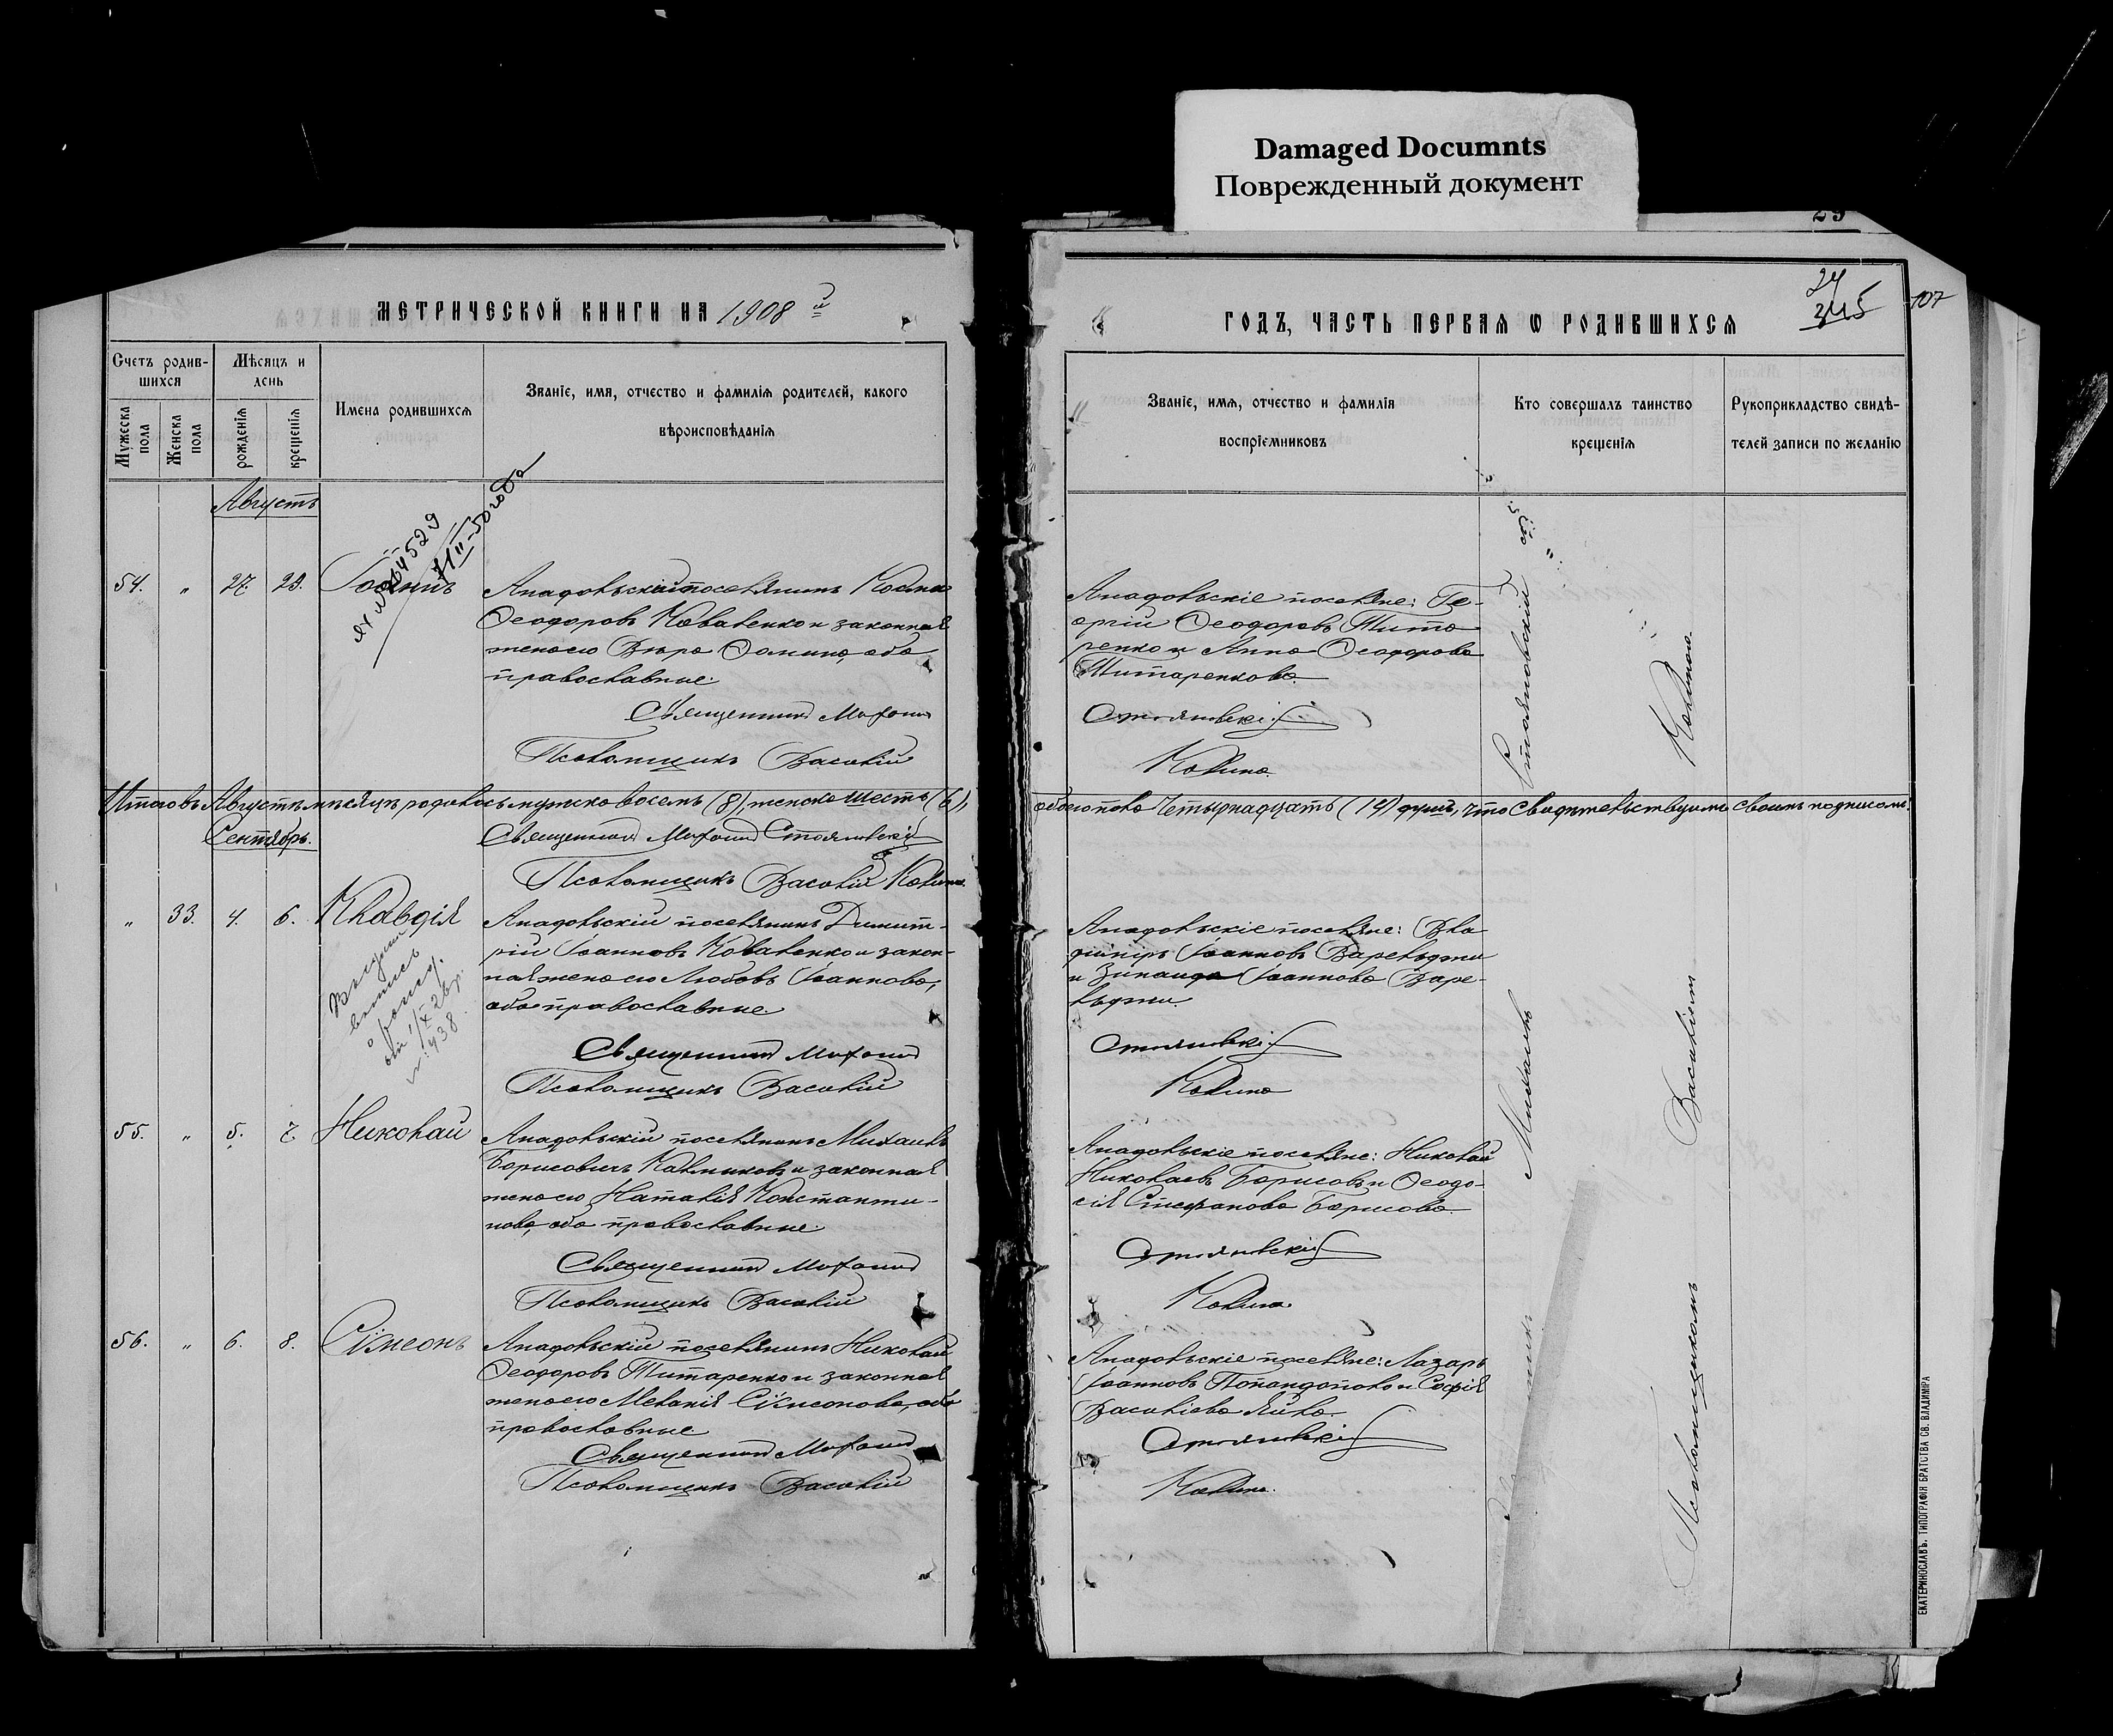 Damaged Documnts
Поврежденный документ
29
МЕТРИЧЕСКОЙ КНИГИ НА 1908 й
Счетъ родив-
шихся
Мѣсяцъ и
день
Мужеска
пола
Женска
пола
рожденія
крещенія
Имена родившихся
Званіе, имя, отчество и фамилія родителей, какого
вѣроисповѣданія
Августъ
54. " 27. 29. Іоаннъ
Анадольскій поселянинъ Косма
Ѳеодоровъ Коваленко и законная
жена его Вѣра Ѳомина, оба
православные.
Священникъ Меѳодій
Псаломщикъ Василій
Итого въ Августѣ мѣсяцѣ родилось мужска восемь (8), женска шесть (6),
Сентябрь.
Священникъ Меѳодій Стояновскій
Псаломщикъ Василій Калина.
" 33. 4. 6. Клавдія
Анадольскій поселянинъ Димит-
рій Іоанновъ Коваленко и закон-
ная жена его Любовь Іоаннова,
оба православные.
от 1/X 26 г.
№ 438.
Священникъ Меѳодій
Псаломщикъ Василій
55. " 5. 7. Николай
Анадольскій поселянинъ Михаилъ
Борисовичъ Калмыковъ и законная
жена его Наталія Константи-
нова, оба православные.
Священникъ Меѳодій
Псаломщикъ Василій
56. " 6. 8. Сѵмеонъ
Анадольскій поселянинъ Николай
Ѳеодоровъ Титаренко и законная
жена его Меланія Сѵмеонова, оба
православные
Священникъ Меѳодій
Псаломщикъ Василій
24
345
107
ГОДЪ, ЧАСТЬ ПЕРВАЯ Ѡ РОДИВШИХСЯ
Званіе, имя, отчество и фамилія
воспріемниковъ
Кто совершалъ таинство
крещенія
Рукоприкладство свидѣ-
телей записи по желанію
Анадольскіе поселяне: Ге-
оргій Ѳеодоровъ Тита-
ренко и Анна Ѳеодорова
Титаренкова.
Стояновскій
Калина.
обоего пола четырнадцать (14) душъ, что свидѣтельствуемъ своимъ подписомъ.
Анадольскіе поселяне: Вла-
диміръ Іоанновъ Варельджи
и Зинаида Іоаннова Варе-
льджи.
Стояновскій
Калина
Анадольскіе поселяне: Николай
Николаевъ Борисовъ и Ѳеодо-
сія Стефанова Борисова.
Стояновскій
Калина
Анадольскіе поселяне: Лазарь
Іоанновъ Попандопало и Софія
Василіева Яйла.
Стояновскій
Калина.
Стояновскій
Псаломщикомъ Василіемъ Калиною.
ЕКАТЕРИНОСЛАВЪ. ТИПОГРАФІЯ БРАТСТВА СВ. ВЛАДИМІРА